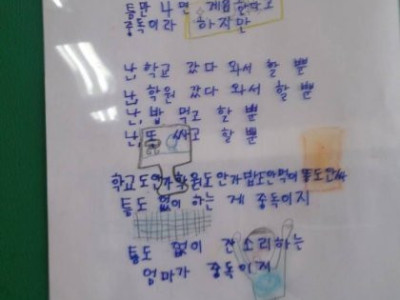 틈만 나면 게임한다고
중독이라 하지만
난, 학교 갔다 와서 할 뿐
난, 학원 갔다 와서 할 뿐
난, 밥 먹고 할 뿐
난, 똥 싸고 할 뿐
학교도안가학원도안가밥도안먹어똥도안싸
틈도 없이 하는 게 중독이지
틈도 없이 잔소리하는
엄마가 중독이지